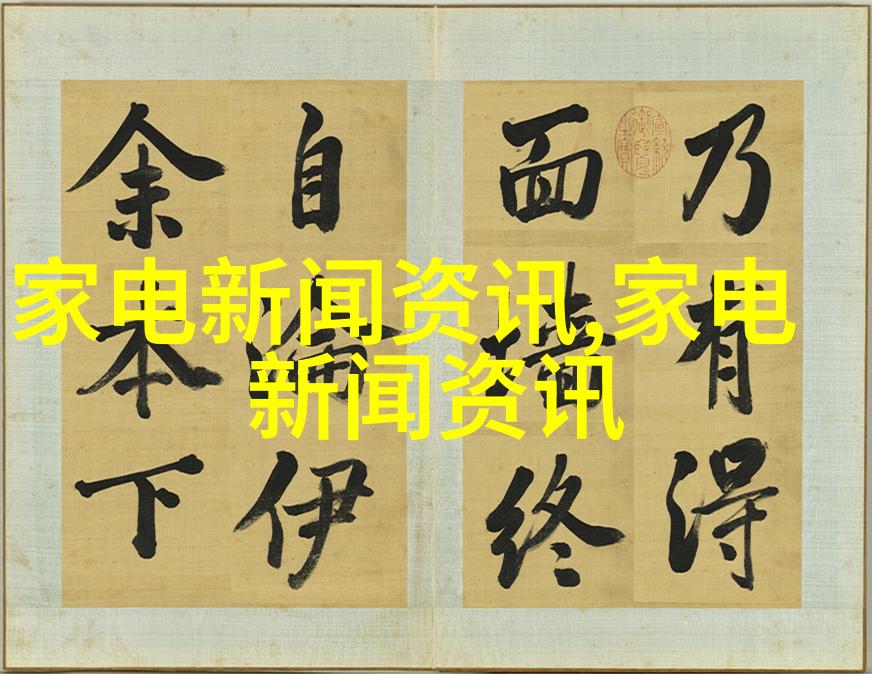 家电新闻资讯,家电
新闻资讯
乃有得
面
终
自
伊
余本下